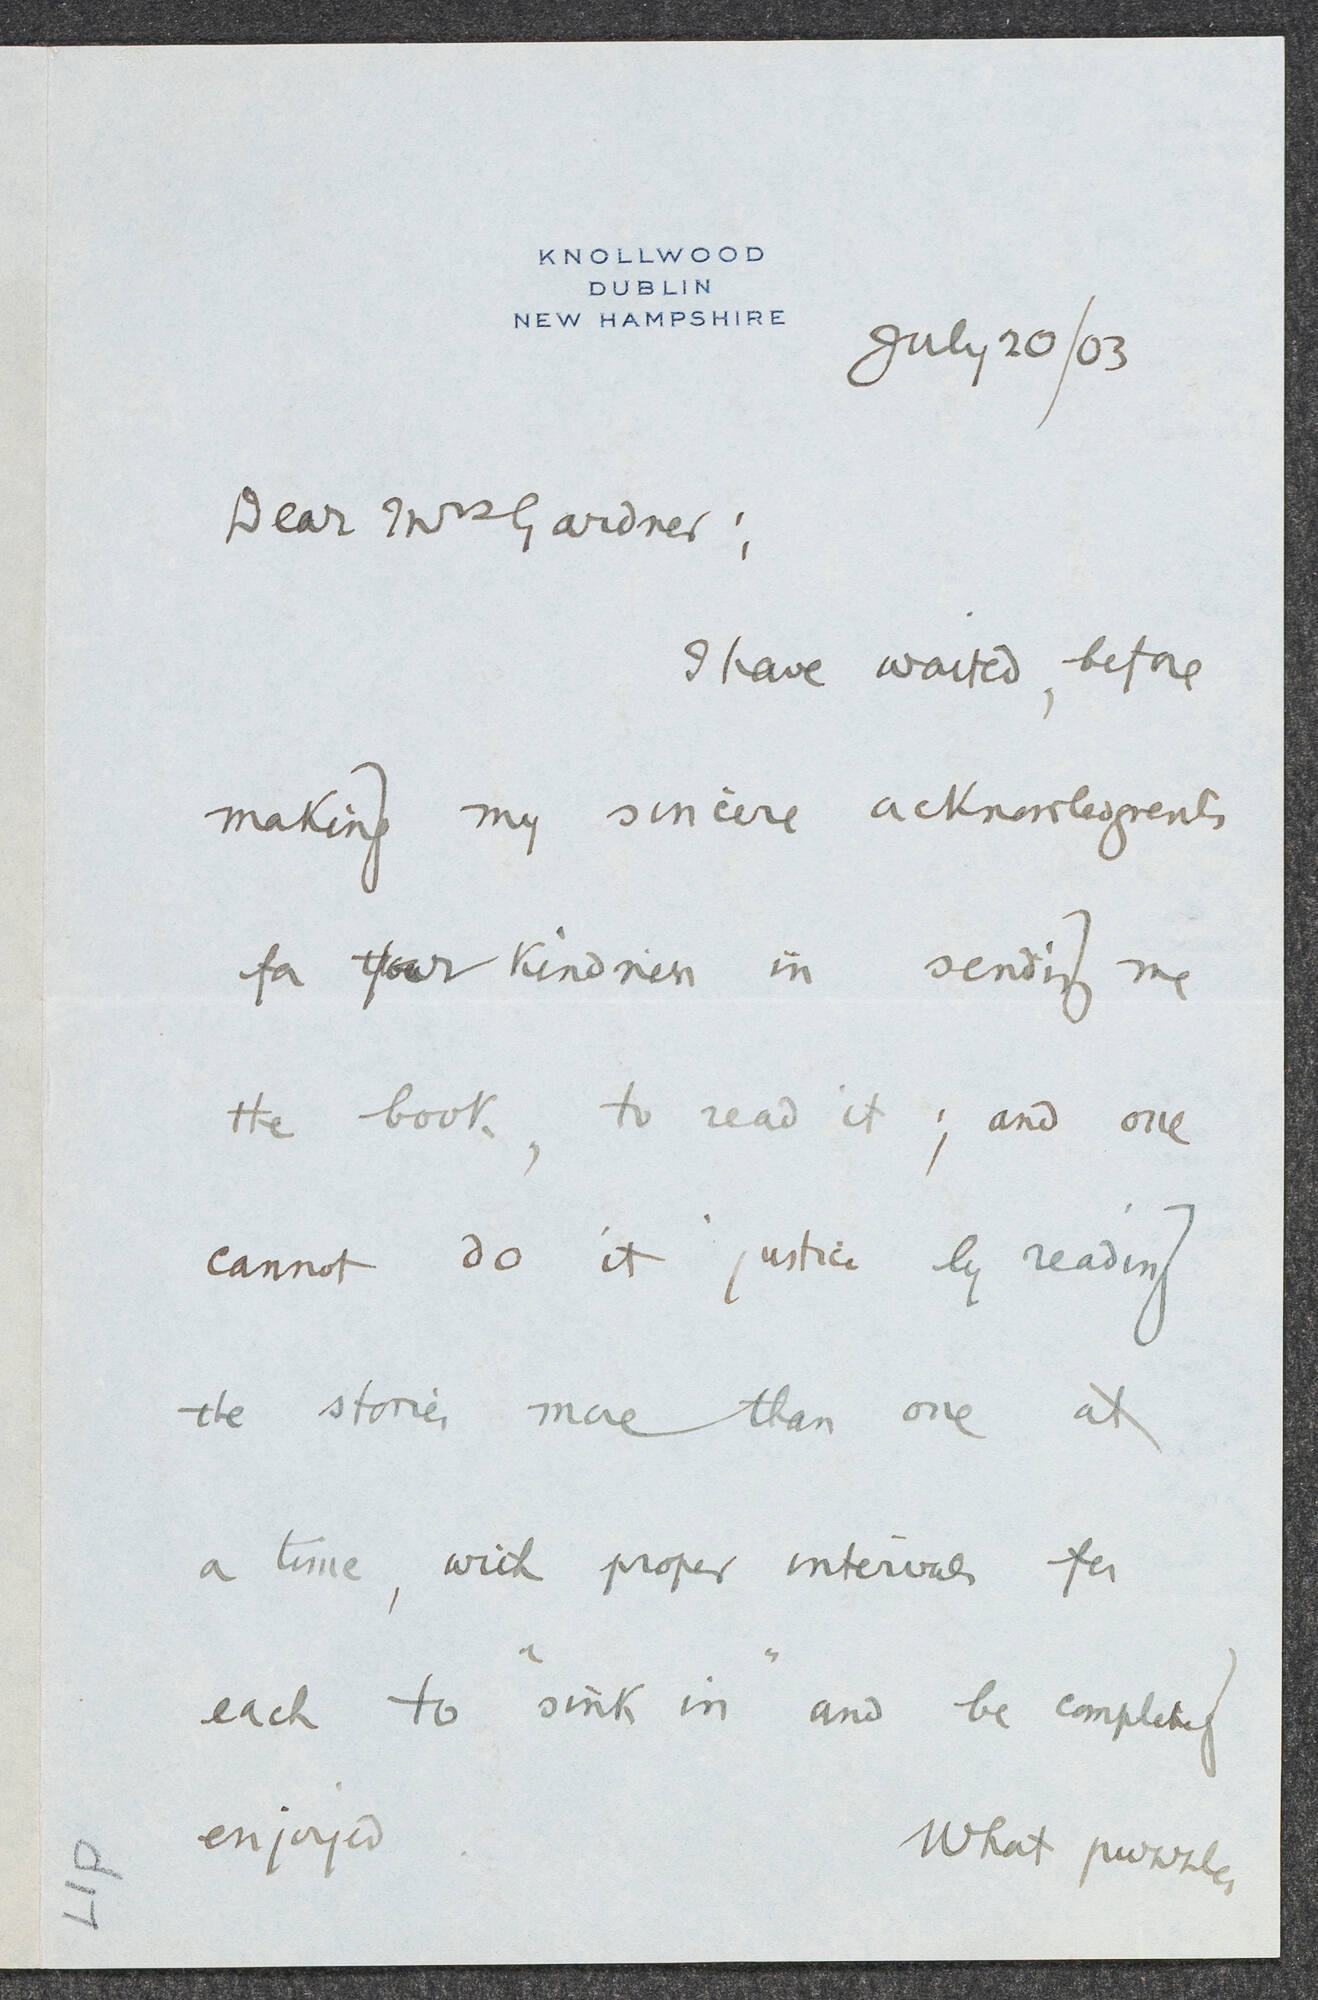 KNOLLWOOD
DUBLIN
NEW HAMPSHIRE
July 20/03
Dear Mrs Gardner;
I have waited, before
making my sincere acknowledgments
for your kindness in sending me
the book, to read it; and one
cannot do it justice by reading
the stories more than one at
a time, with proper intervals for
each to "sink in" and be completely
enjoyed. What puzzles